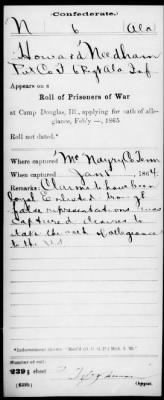 Confederate.
N 6 Ala
Howard Needham
Pvt Co I 6 Reg Ala Inf.
Appears on a
Roll of Prisoners of War
at Camp Douglas, Ill., applying for oath of alle-
giance, Feb'y —, 1865
Roll not dated.*
Where captured McNayry Co Tenn
When captured Jan 1, 1864.
Remarks: Claims to have been
loyal Enlisted through
false representations was
captured desires to
take the oath of allegiance
to the U.S.
Number of roll:
239; sheet 2
(639b) Copyist.